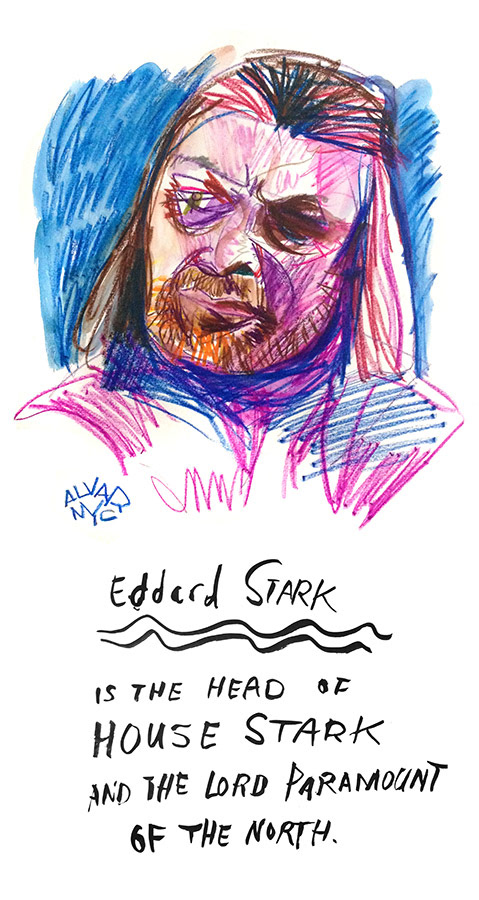 ALVAR
NYC
Eddard STARK
IS THE HEAD OF
HOUSE STARK
AND THE LORD PARAMOUNT
OF THE NORTH.